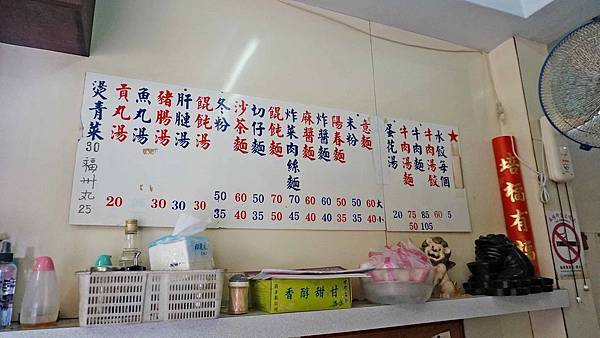 ★
水餃每個
牛肉湯餃
牛肉湯
牛肉湯麵
蛋花湯
意麵
米粉
陽春麵
炸醬麵
麻醬麵
炸菜肉絲麵
餛飩麵
切仔麵
沙茶麵
冬粉
餛飩湯
肝腱湯
豬腸湯
魚丸湯
貢丸湯
燙青菜
30
福州丸
25
20 30 30 30
50 60 50 60 70 60 60 50 50 60 大
35 40 35 45 50 45 40 40 35 40 小
20 75 85 60 5
50 105
香醇甜甘